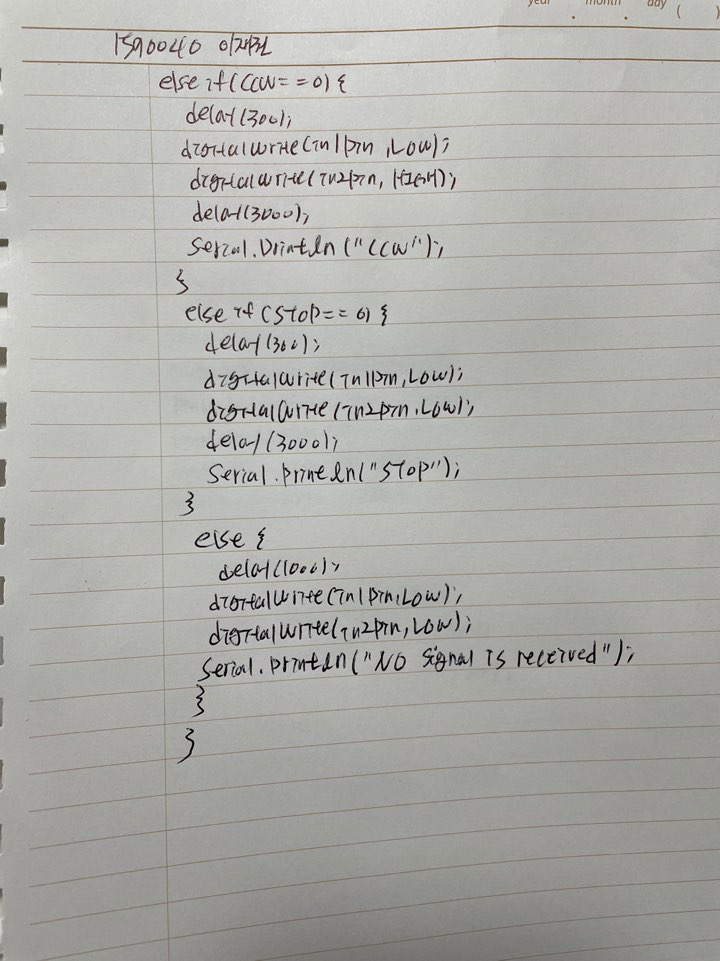 year . month . day ( )
1590040 이재원
else if(CCW==0){
delay(300);
digitalWrite(in1pin,Low);
digitalWrite(in2pin, HIGH);
delay(3000);
Serial.println("CCW");
}
else if(STOP==0){
delay(300);
digitalWrite(in1pin,Low);
digitalWrite(in2pin,Low);
delay(3000);
Serial.println("STOP");
}
else {
delay(1000);
digitalWrite(in1pin,Low);
digitalWrite(in2pin,Low);
Serial.println("NO signal is received");
}
}